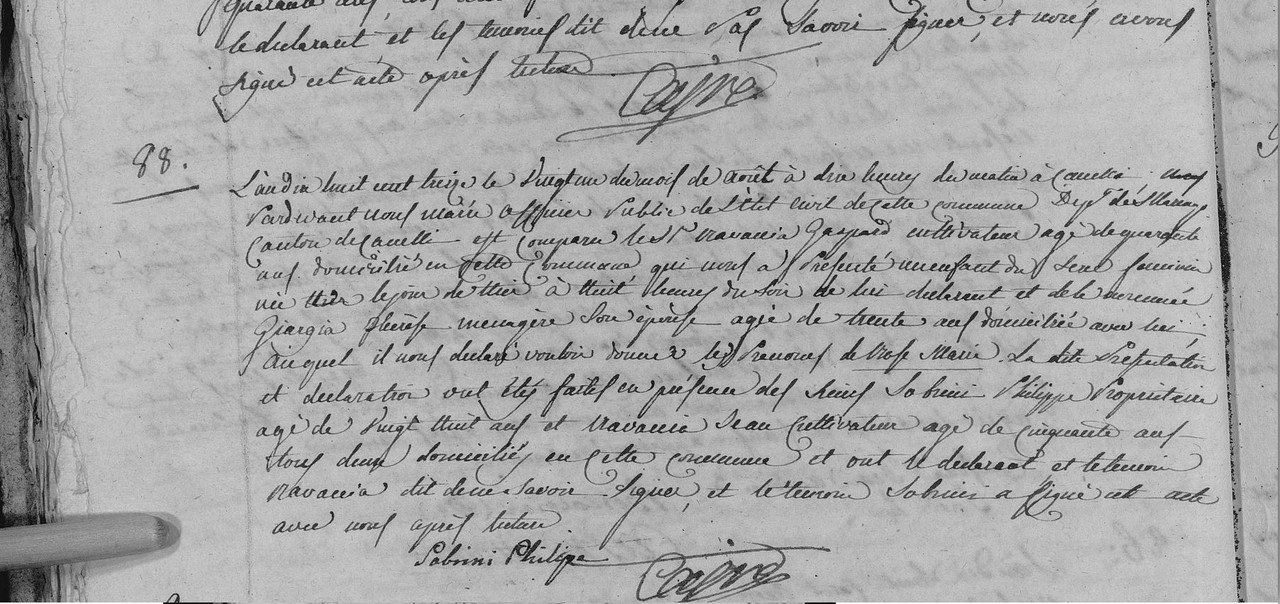 le declarant et les temoins dit de ne pas Savoir Signer, et nous avons
Signé cet acte après lecture
88.
L'an dix huit cent treize le Vingt un du mois de août à dix heures du matin à Canelli
Pardevant nous maire officier Public de L'état civil de Cette Commune Dept de Marengo
Canton de Canelli est comparu le Sr Gaspard cultivateur agé de quarante
ans domicilié en Cette Commune qui nous a Présenté un enfant du Sexe féminin
née hier le jour de hier à huit heures du Soir de lui declarant et de la nommée
Giargia Thérèse menagère Son épouse agé de trente ans domiciliée avec lui
auquel il nous declare vouloir donner les Prenoms de Rose Marie. La dite Présentation
et declaration ont étés faites en présence des Sieurs Sabrini Philippe Propriétaire
agé de Vingt huit ans et Jean Cultivateur agé de Cinquante ans
tous deux domiciliés en Cette commune et ont le declarant et le temoin
dit de ne Savoir Signer, et le temoin Sabrini a Signé cet acte
avec nous après lecture
Sabrini Philipe